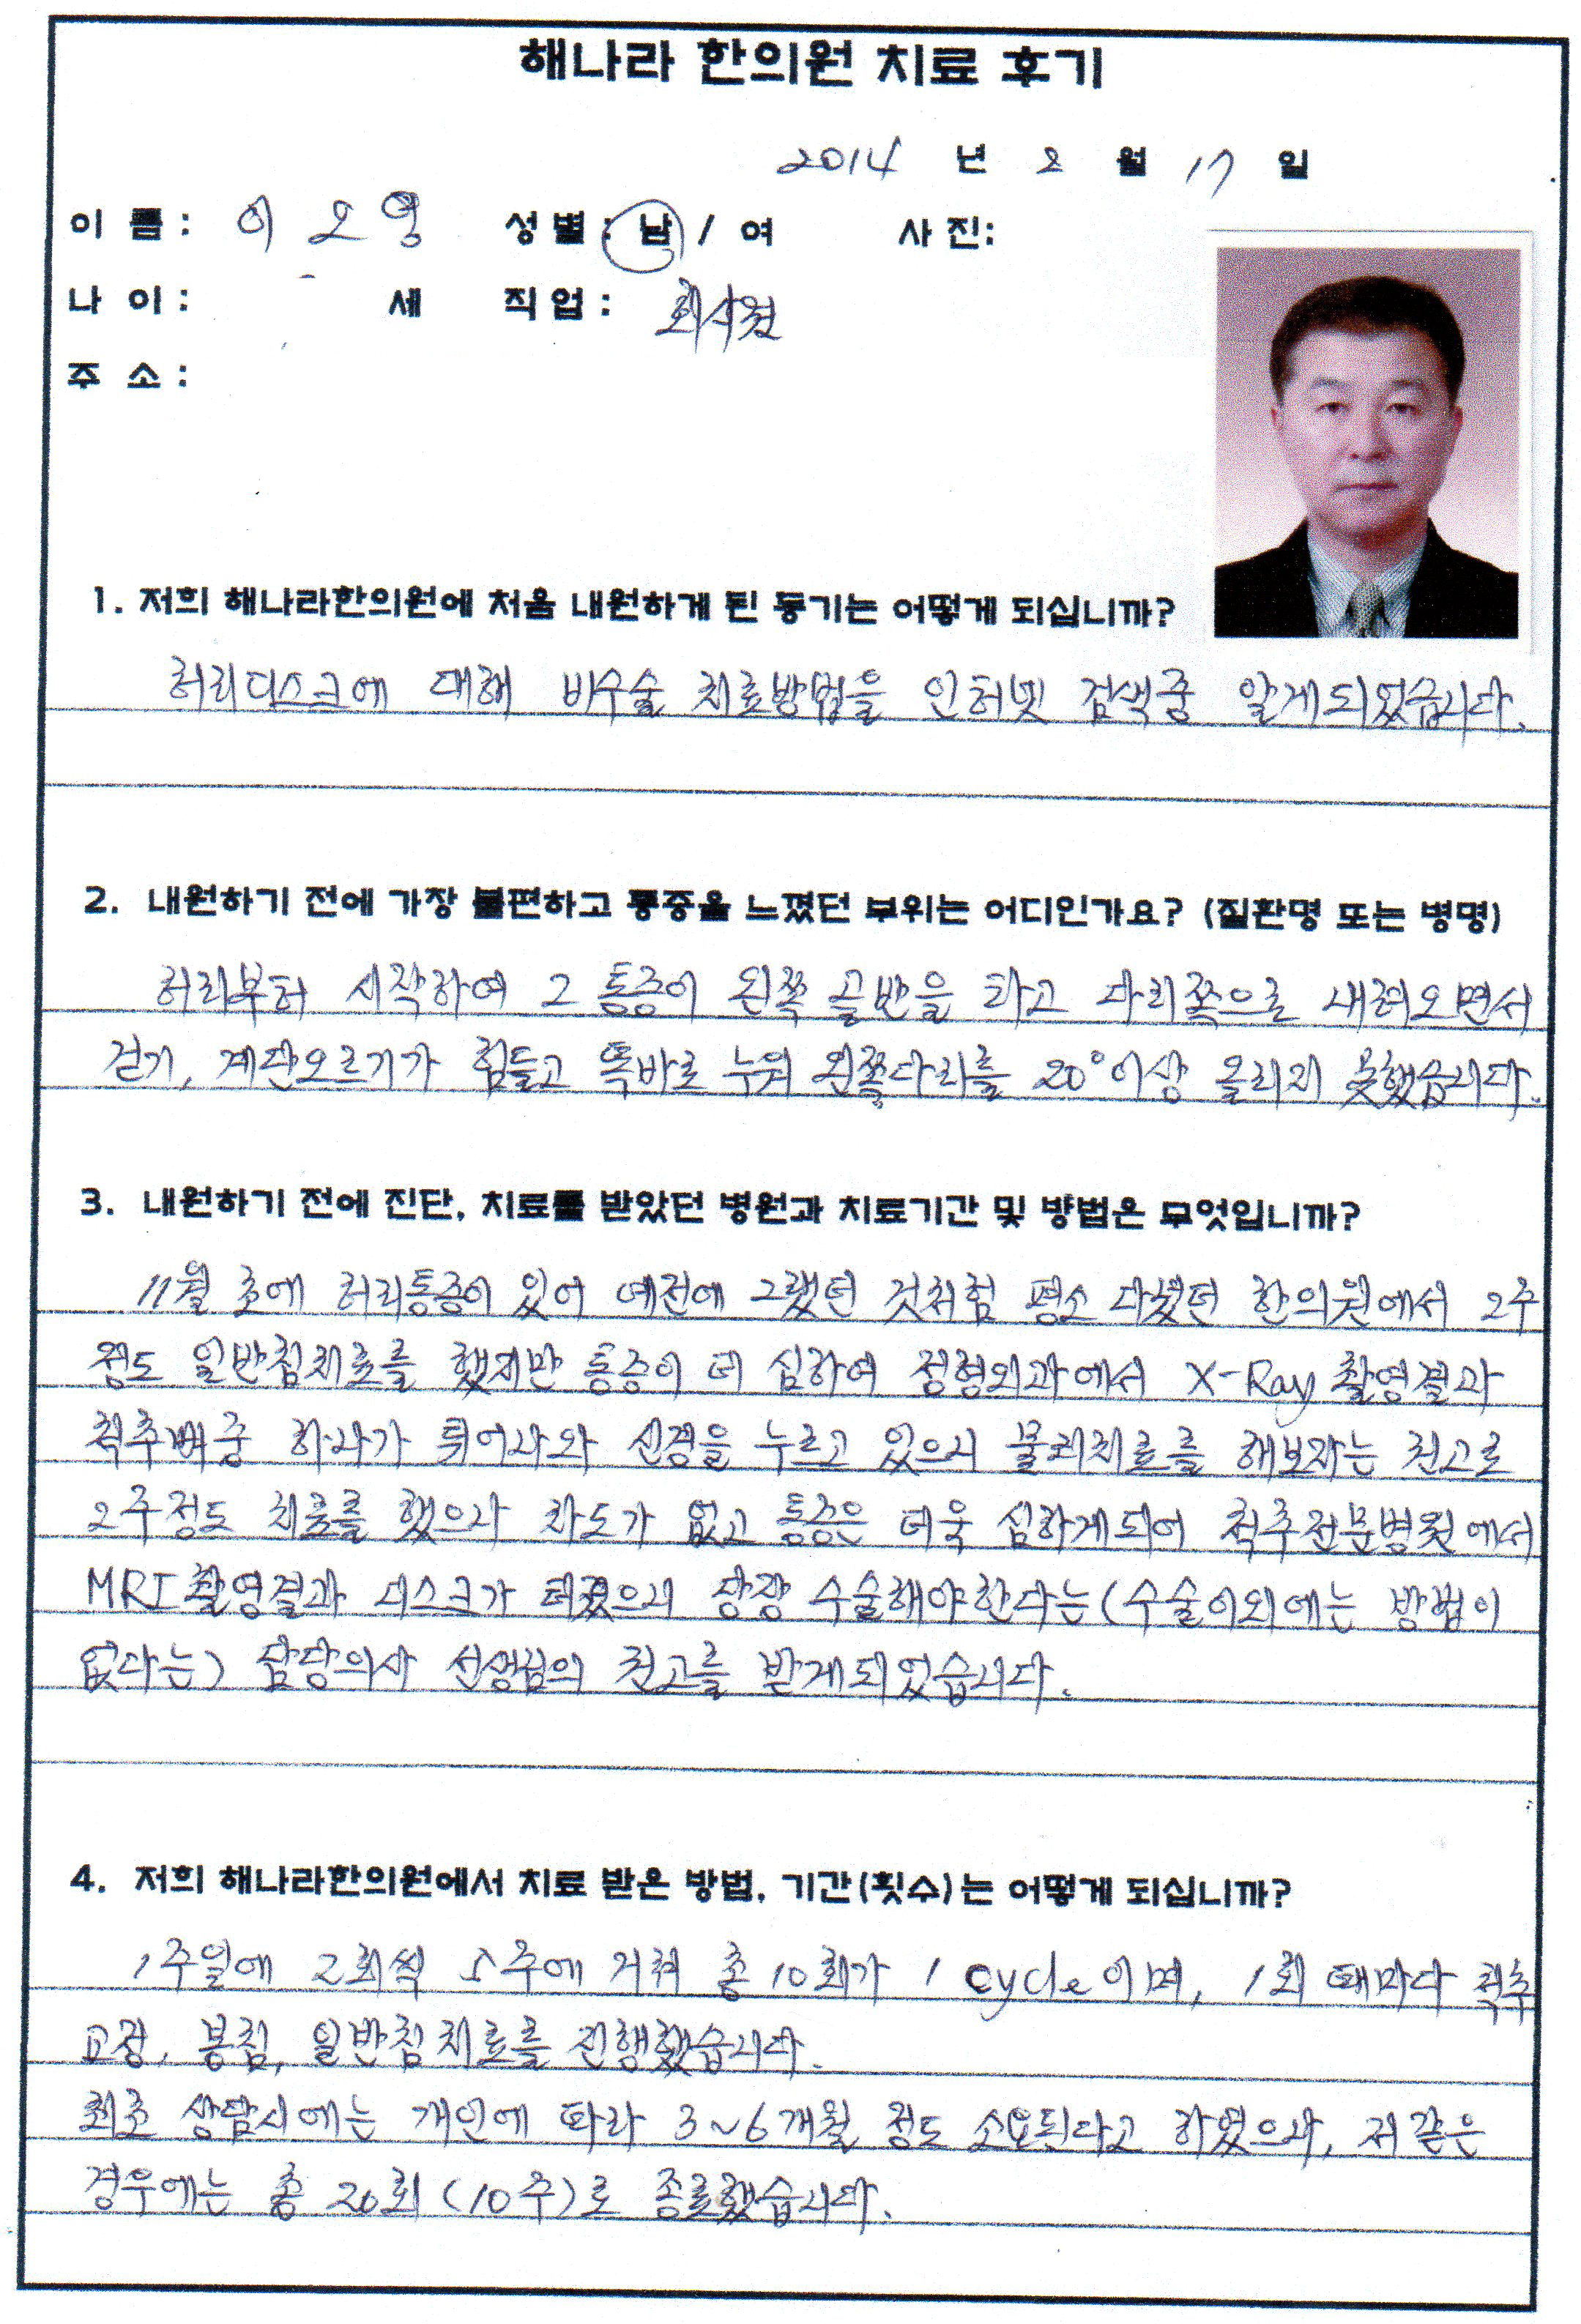 해나라 한의원 치료 후기
2014 년 2 월 17 일
이 름 : 이 오 영 성 별 : 남 / 여 사 진:
나 이 : 세 직 업 : 회사원
주 소 :
1. 저희 해나라한의원에 처음 내원하게 된 동기는 어떻게 되십니까?
허리디스크에 대해 비수술 치료방법을 인터넷 검색중 알게되었습니다.
2. 내원하기 전에 가장 불편하고 통증을 느꼈던 부위는 어디인가요? (질환명 또는 병명)
허리부터 시작하여 그 통증이 왼쪽 골반을 타고 다리쪽으로 내려오면서
걷기, 계단오르기가 힘들고 똑바로 누워 왼쪽다리를 20°이상 올리지 못했습니다.
3. 내원하기 전에 진단, 치료를 받았던 병원과 치료기간 및 방법은 무엇입니까?
11월 초에 허리통증이 있어 예전에 그랬던 것처럼 평소 다녔던 한의원에서 2주
정도 일반침치료를 했지만 통증이 더 심하여 정형외과에서 X-Ray 촬영결과
척추뼈중 하나가 튀어나와 신경을 누르고 있으니 물리치료를 해보자는 권고로
2주정도 치료를 했으나 차도가 없고 통증은 더욱 심하게되어 척추전문병원에서
MRI촬영결과 디스크가 터졌으니 당장 수술해야한다는(수술이외에는 방법이
없다는) 담당의사 선생님의 권고를 받게되었습니다.
4. 저희 해나라한의원에서 치료 받은 방법, 기간(횟수)는 어떻게 되십니까?
1주일에 2회씩 5주에 거쳐 총 10회가 1 cycle이며, 1회 때마다 척추
교정, 봉침, 일반침치료를 진행했습니다.
최초 상담시에는 개인에 따라 3~6개월 정도 소요된다고 하였으나, 저 같은
경우에는 총 20회(10주)로 종료했습니다.